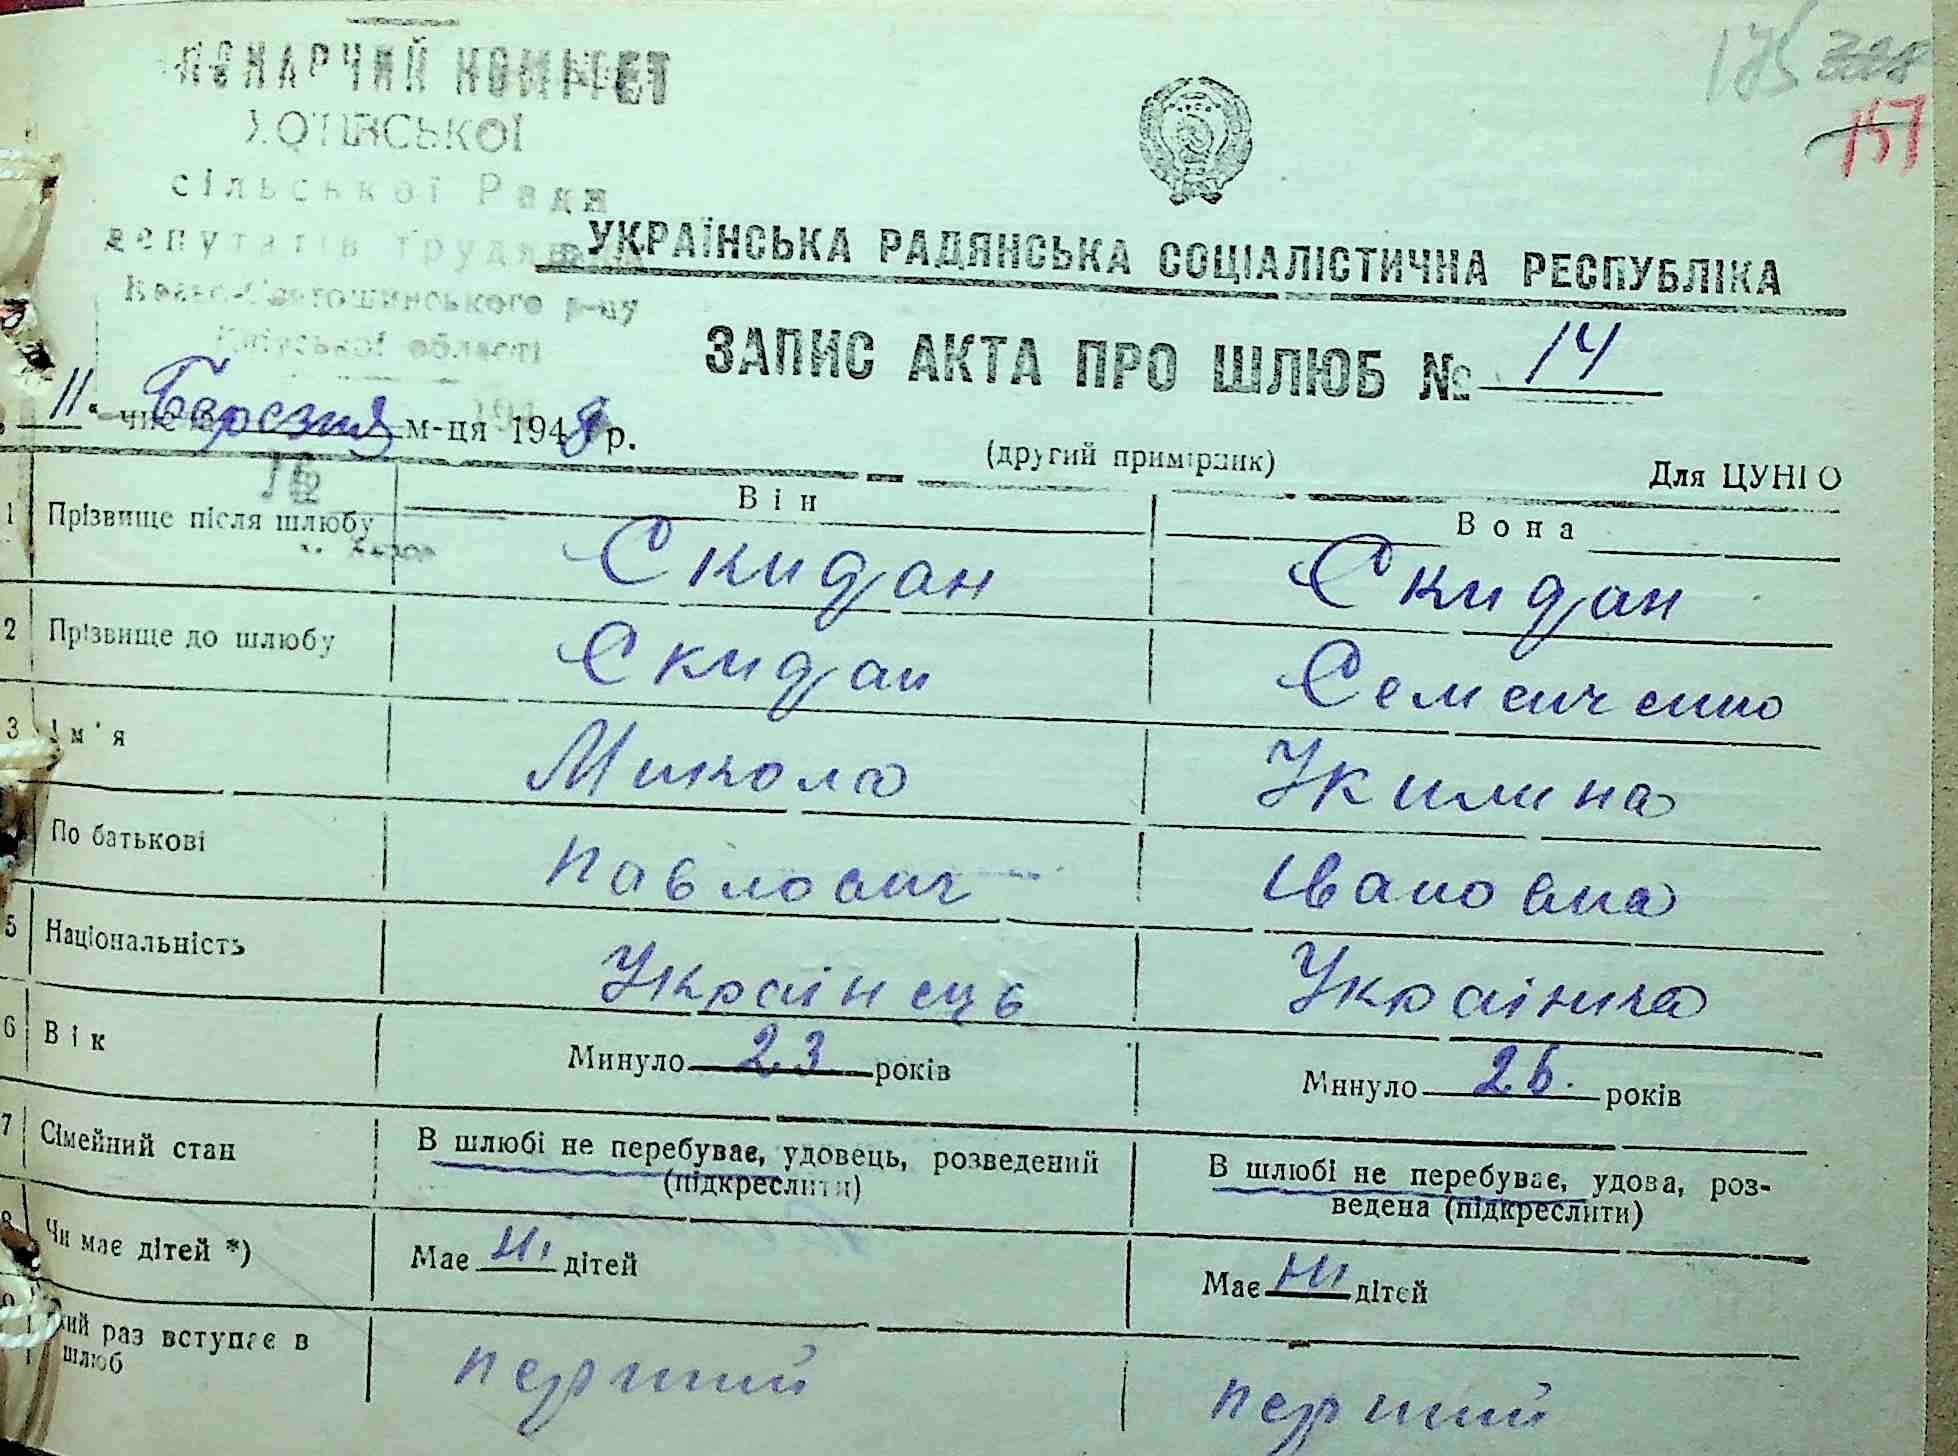 КОМІТЕТ
ХОТІВСЬКОЇ
сільської Ради
депутатів трудящих
Києво-Святошинського р-ну
Київської області
175
157
УКРАЇНСЬКА РАДЯНСЬКА СОЦІАЛІСТИЧНА РЕСПУБЛІКА
ЗАПИС АКТА ПРО ШЛЮБ № 14
11 " Березня м-ця 1948 р.
(другий примірник)
Для ЦУНГО
Він
Вона
1 Прізвище після шлюбу Скидан Скидан
2 Прізвище до шлюбу Скидан Семенченко
3 Ім'я Микола Укилина
По батькові Павлович Івановна
5 Національність Українець Українка
6 Вік Минуло 23 років Минуло 26. років
7 Сімейний стан В шлюбі не перебуває, удовець, розведений В шлюбі не перебуває, удова, роз-
(підкреслити) ведена (підкреслити)
8 Чи має дітей *) Має ні дітей Має ні дітей
9 раз вступає в перший перший
шлюб